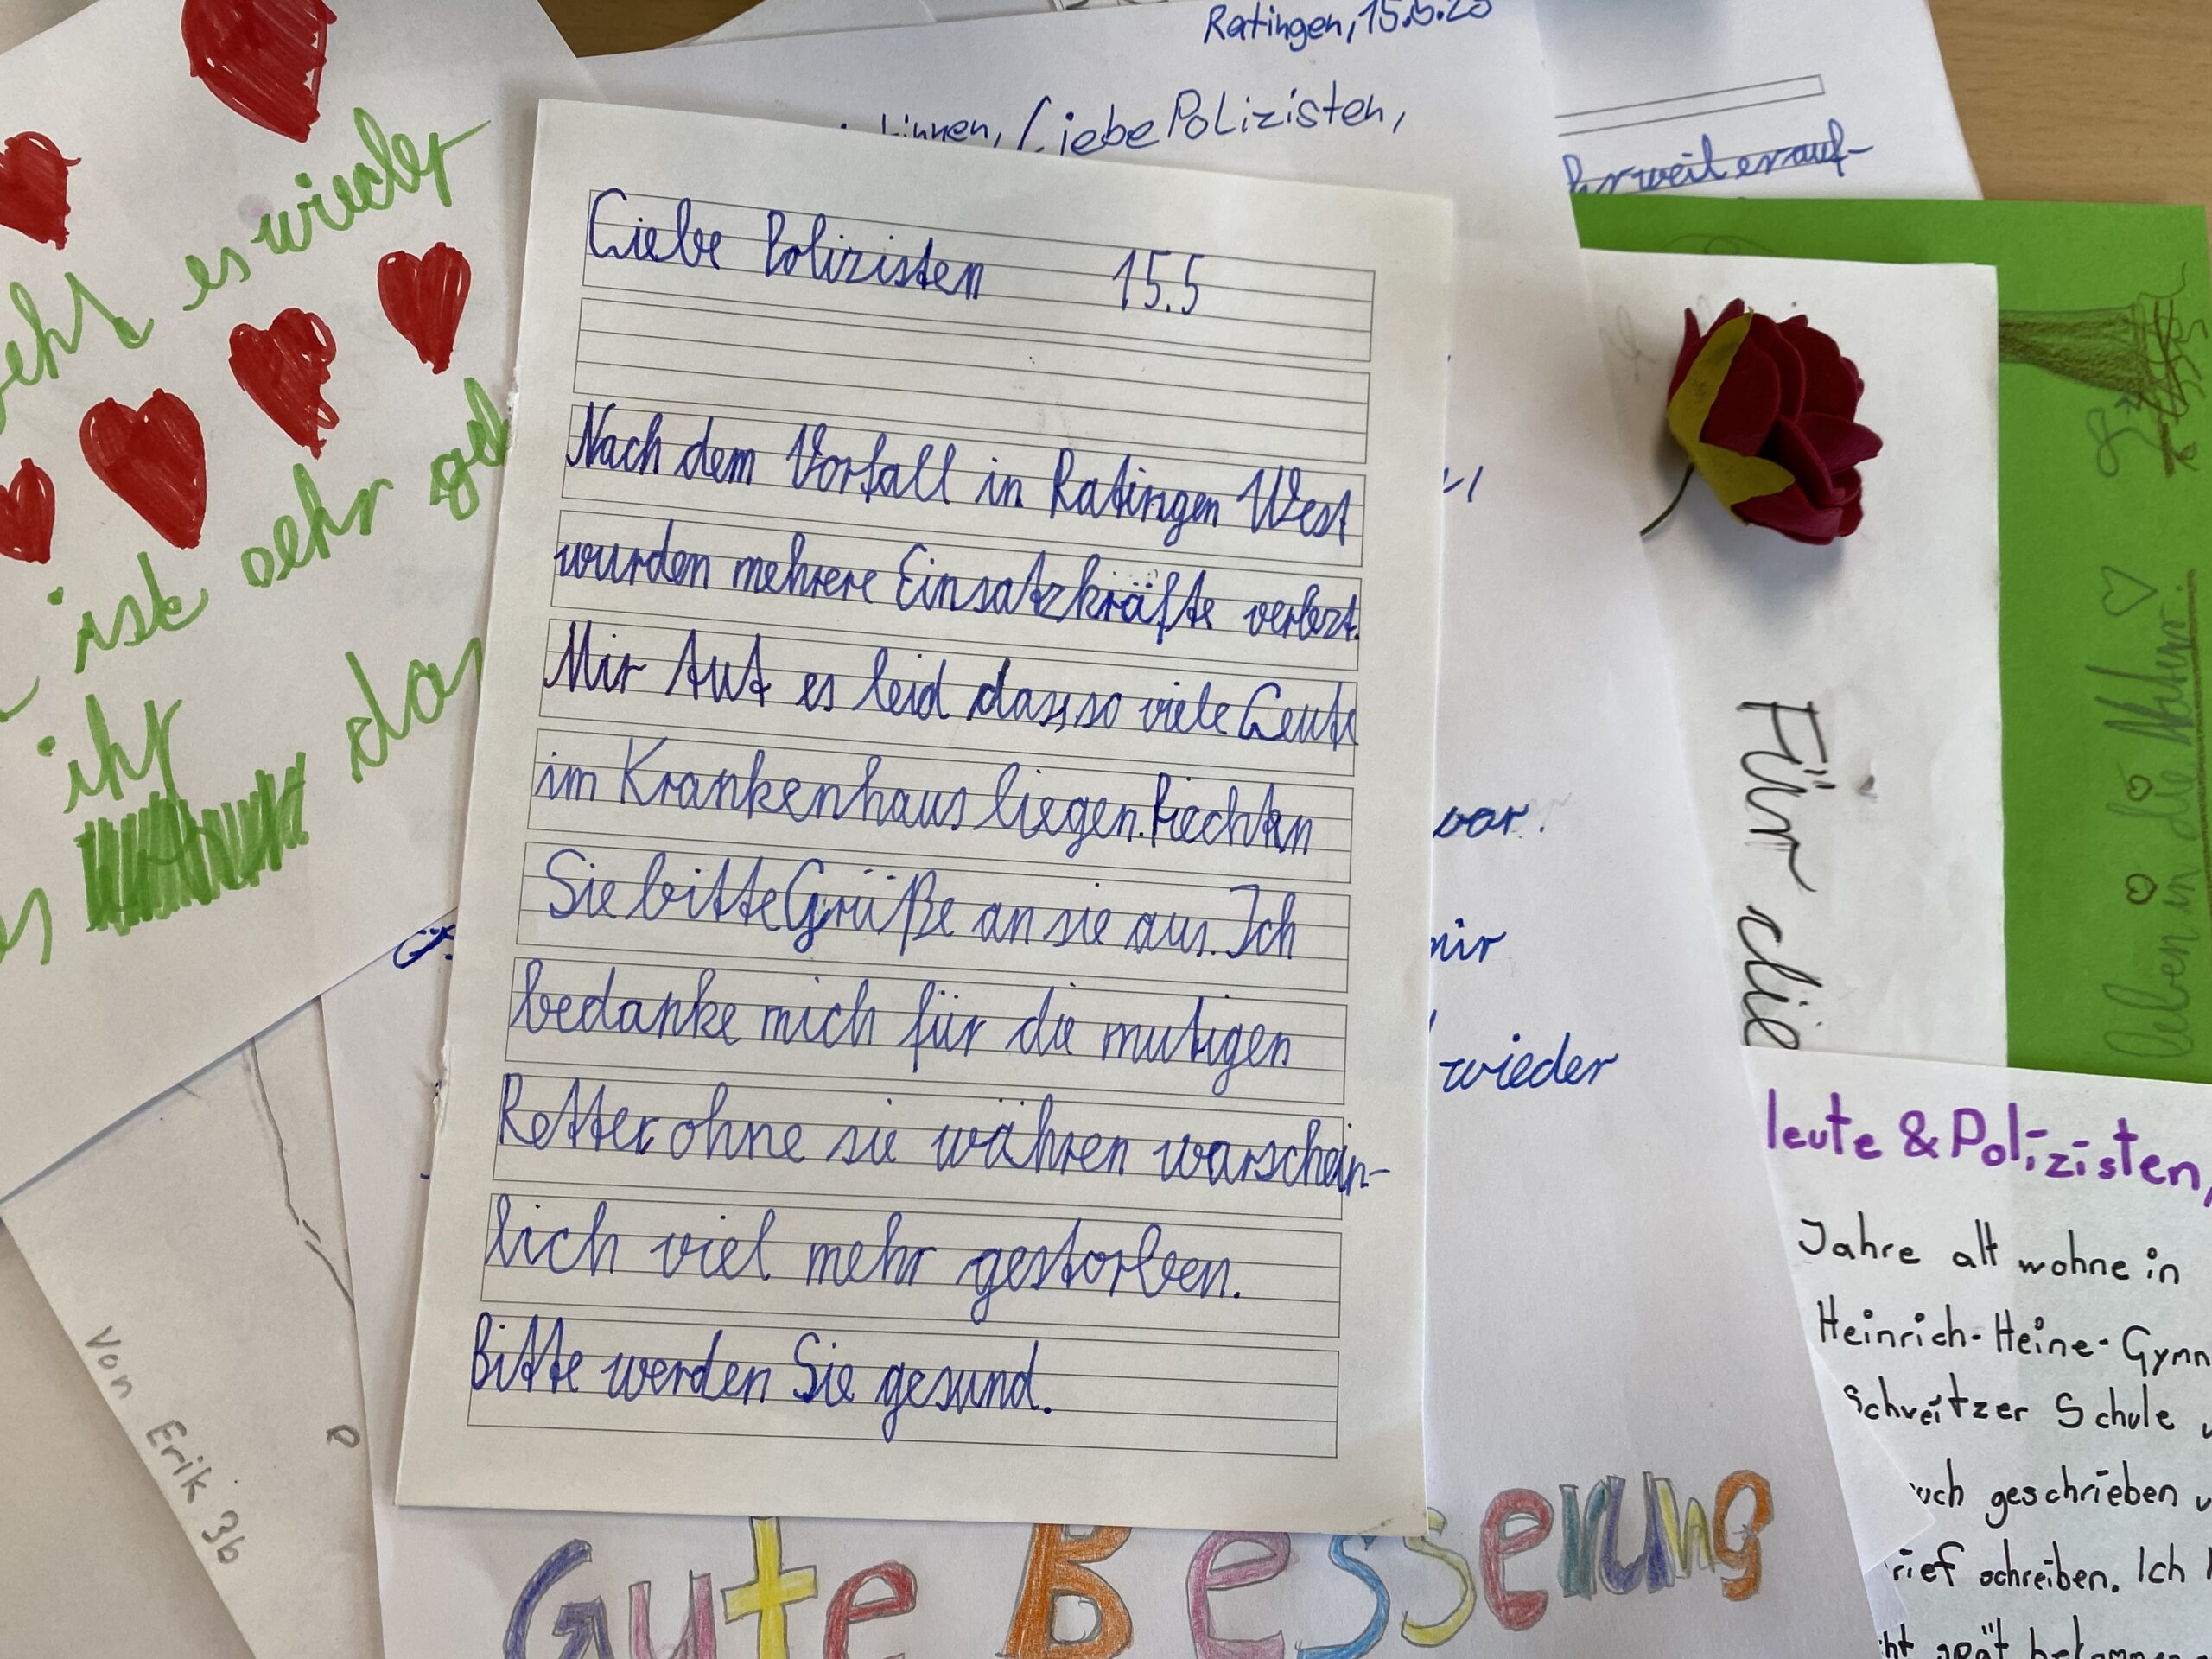 Ratingen, 15.5.23
innen, Liebe Polizisten,
Liebe Polizisten 15.5
Nach dem Vorfall in Ratingen West
wurden mehrere Einsatzkräfte verlezt.
Mir tut es leid dass so viele Leute
im Krankenhaus liegen. Riechten
Sie bitte Grüße an sie aus. Ich
bedanke mich für die mutigen
Retter ohne sie währen warschein-
lich viel mehr gestorben.
Bitte werden Sie gesund.
es wieder
ist sehr
ihr
das
auf-
war.
mir
wieder
Für die
in die
leute & Polizisten,
Jahre alt wohne in
Heinrich-Heine-Gymn
Schweitzer Schule
geschrieben
schreiben. Ich
spät bekommen
Von Erik 3b
Gute Besserung